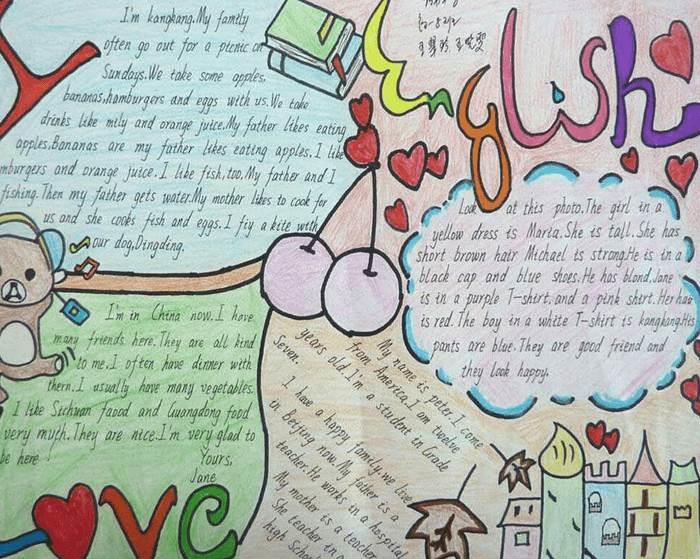 I'm kangkang.My family
often go out for a picnic on
Sundays.We take some apples,
bananas,hamburgers and eggs with us.We take
drinks like mily and orange juice.My father likes eating
apples.Bananas are my father likes eating apples.I like
mburgers and orange juice. I like fish,too.My father and I
fishing.Then my father gets water.My mother likes to cook for
us and she cooks fish and eggs.I fiy a kite with
our dog,Dingding.
English
Look at this photo.The girl in a
yellow dress is Maria.She is tall.She has
short brown hair Michael is strong.He is in a
black cap and blue shoes.He has blond.Jane
is in a purple T-shirt.and a pink shirt.Her hao
is red.The boy in a white T-shirt is kangkang.His
pants are blue.They are good friend and
they look happy.
I'm in China now.I have
many friends here.They are all kind
to me.I often have dinner with
them.I usually have many vegetables.
I like Sichuan faood and Guangdong food
very myth.They are nice.I'm very glad to
be here
Yours,
Jane
My name is peter.I come
from America.I am twelve
years old.I'm a student in Grade
Seven.
I have a happy family.we live
in Beijing now.My father is a
teacher.He works in a hospital
My mother is a teacher
She teacher in a
high Schoo
OVE